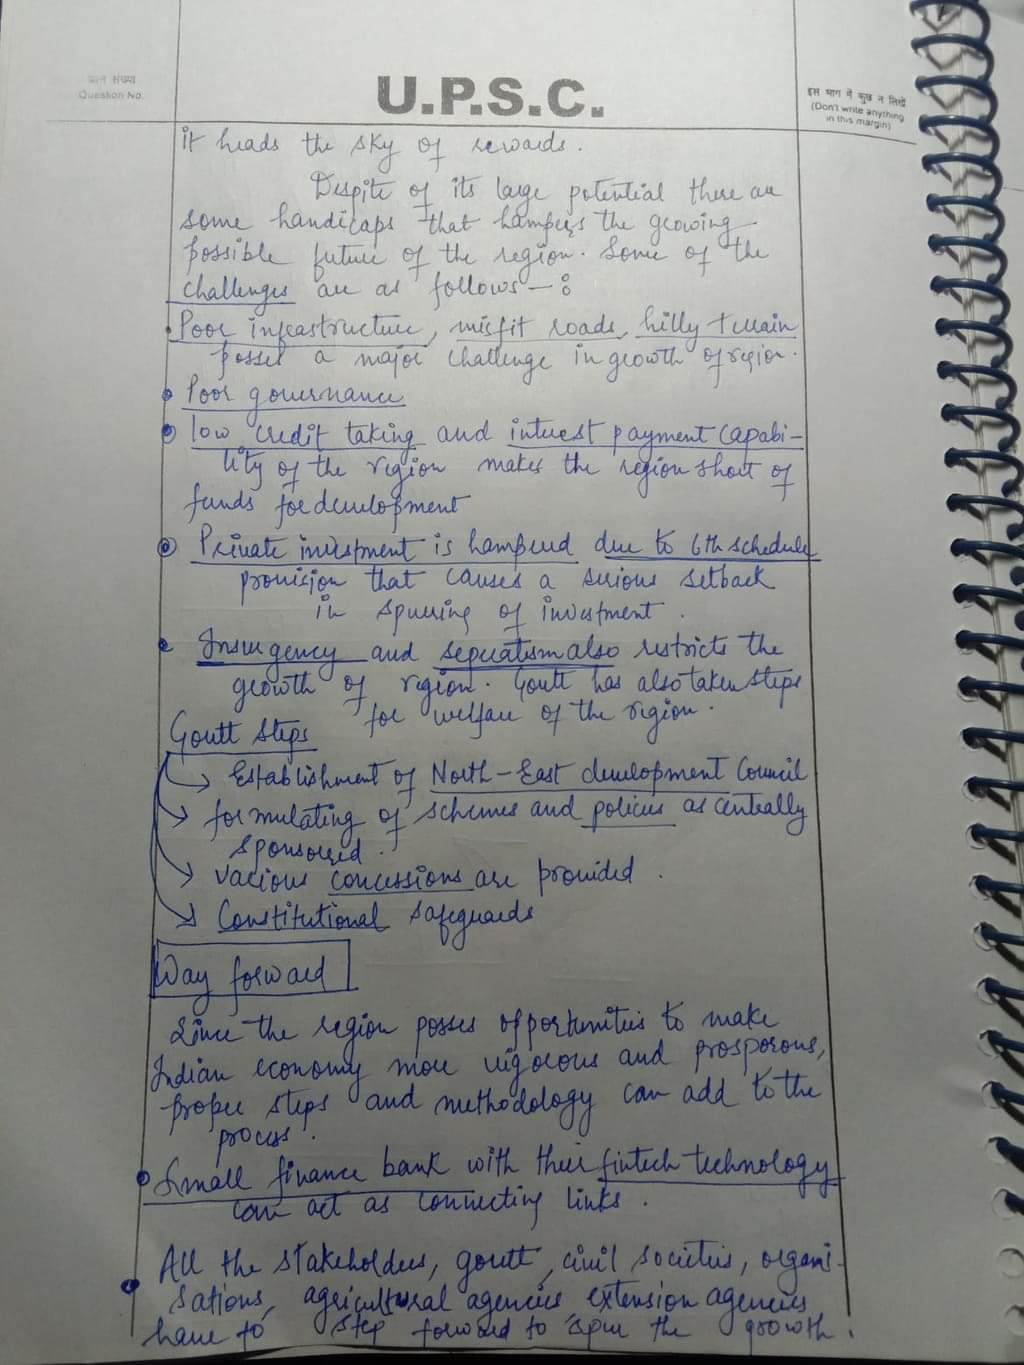 प्रश्न संख्या
Question No.
U.P.S.C.
इस भाग में कुछ न लिखें
(Don't write anything
in this margin)
it heads the sky of rewards.
Despite of its large potential there are
some handicaps that hampers the growing
possible future of the region. Some of the
challenges are as follows —:
• Poor infrastructure, misfit roads, hilly terrain
posses a major challenge in growth of region.
• Poor governance
• low credit taking and interest payment capabi-
lity of the region makes the region short of
funds for development
• Private investment is hampered due to 6th schedule
provision that causes a serious setback
in spurring of investment.
• Insurgency and sepratism also restricts the
growth of region. Govtt has also taken steps
for welfare of the region.
Govtt steps
→ Establishment of North-East development Council
→ formulating of schemes and policies as centrally
sponsored.
→ various concessions are provided.
→ Constitutional safeguards
Way forward
Since the region posses opportunities to make
Indian economy more vigorous and prosporous,
proper steps and methodology can add to the
process.
• Small finance bank with their fintech technology
can act as connecting links.
• All the stakeholders, govtt, civil societies, organi-
sations, agricultural agencies extension agencies
have to step forward to spur the growth.